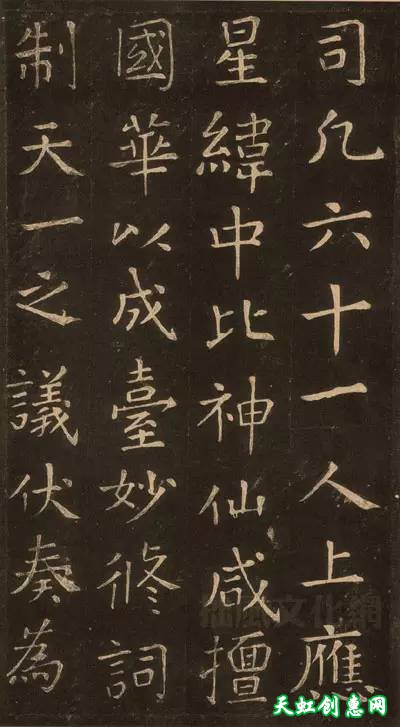 司凡六十一人上應
星緯中比神仙咸擅
國華以成臺妙修詞
制天一之議伏奏為
天虹创惠网